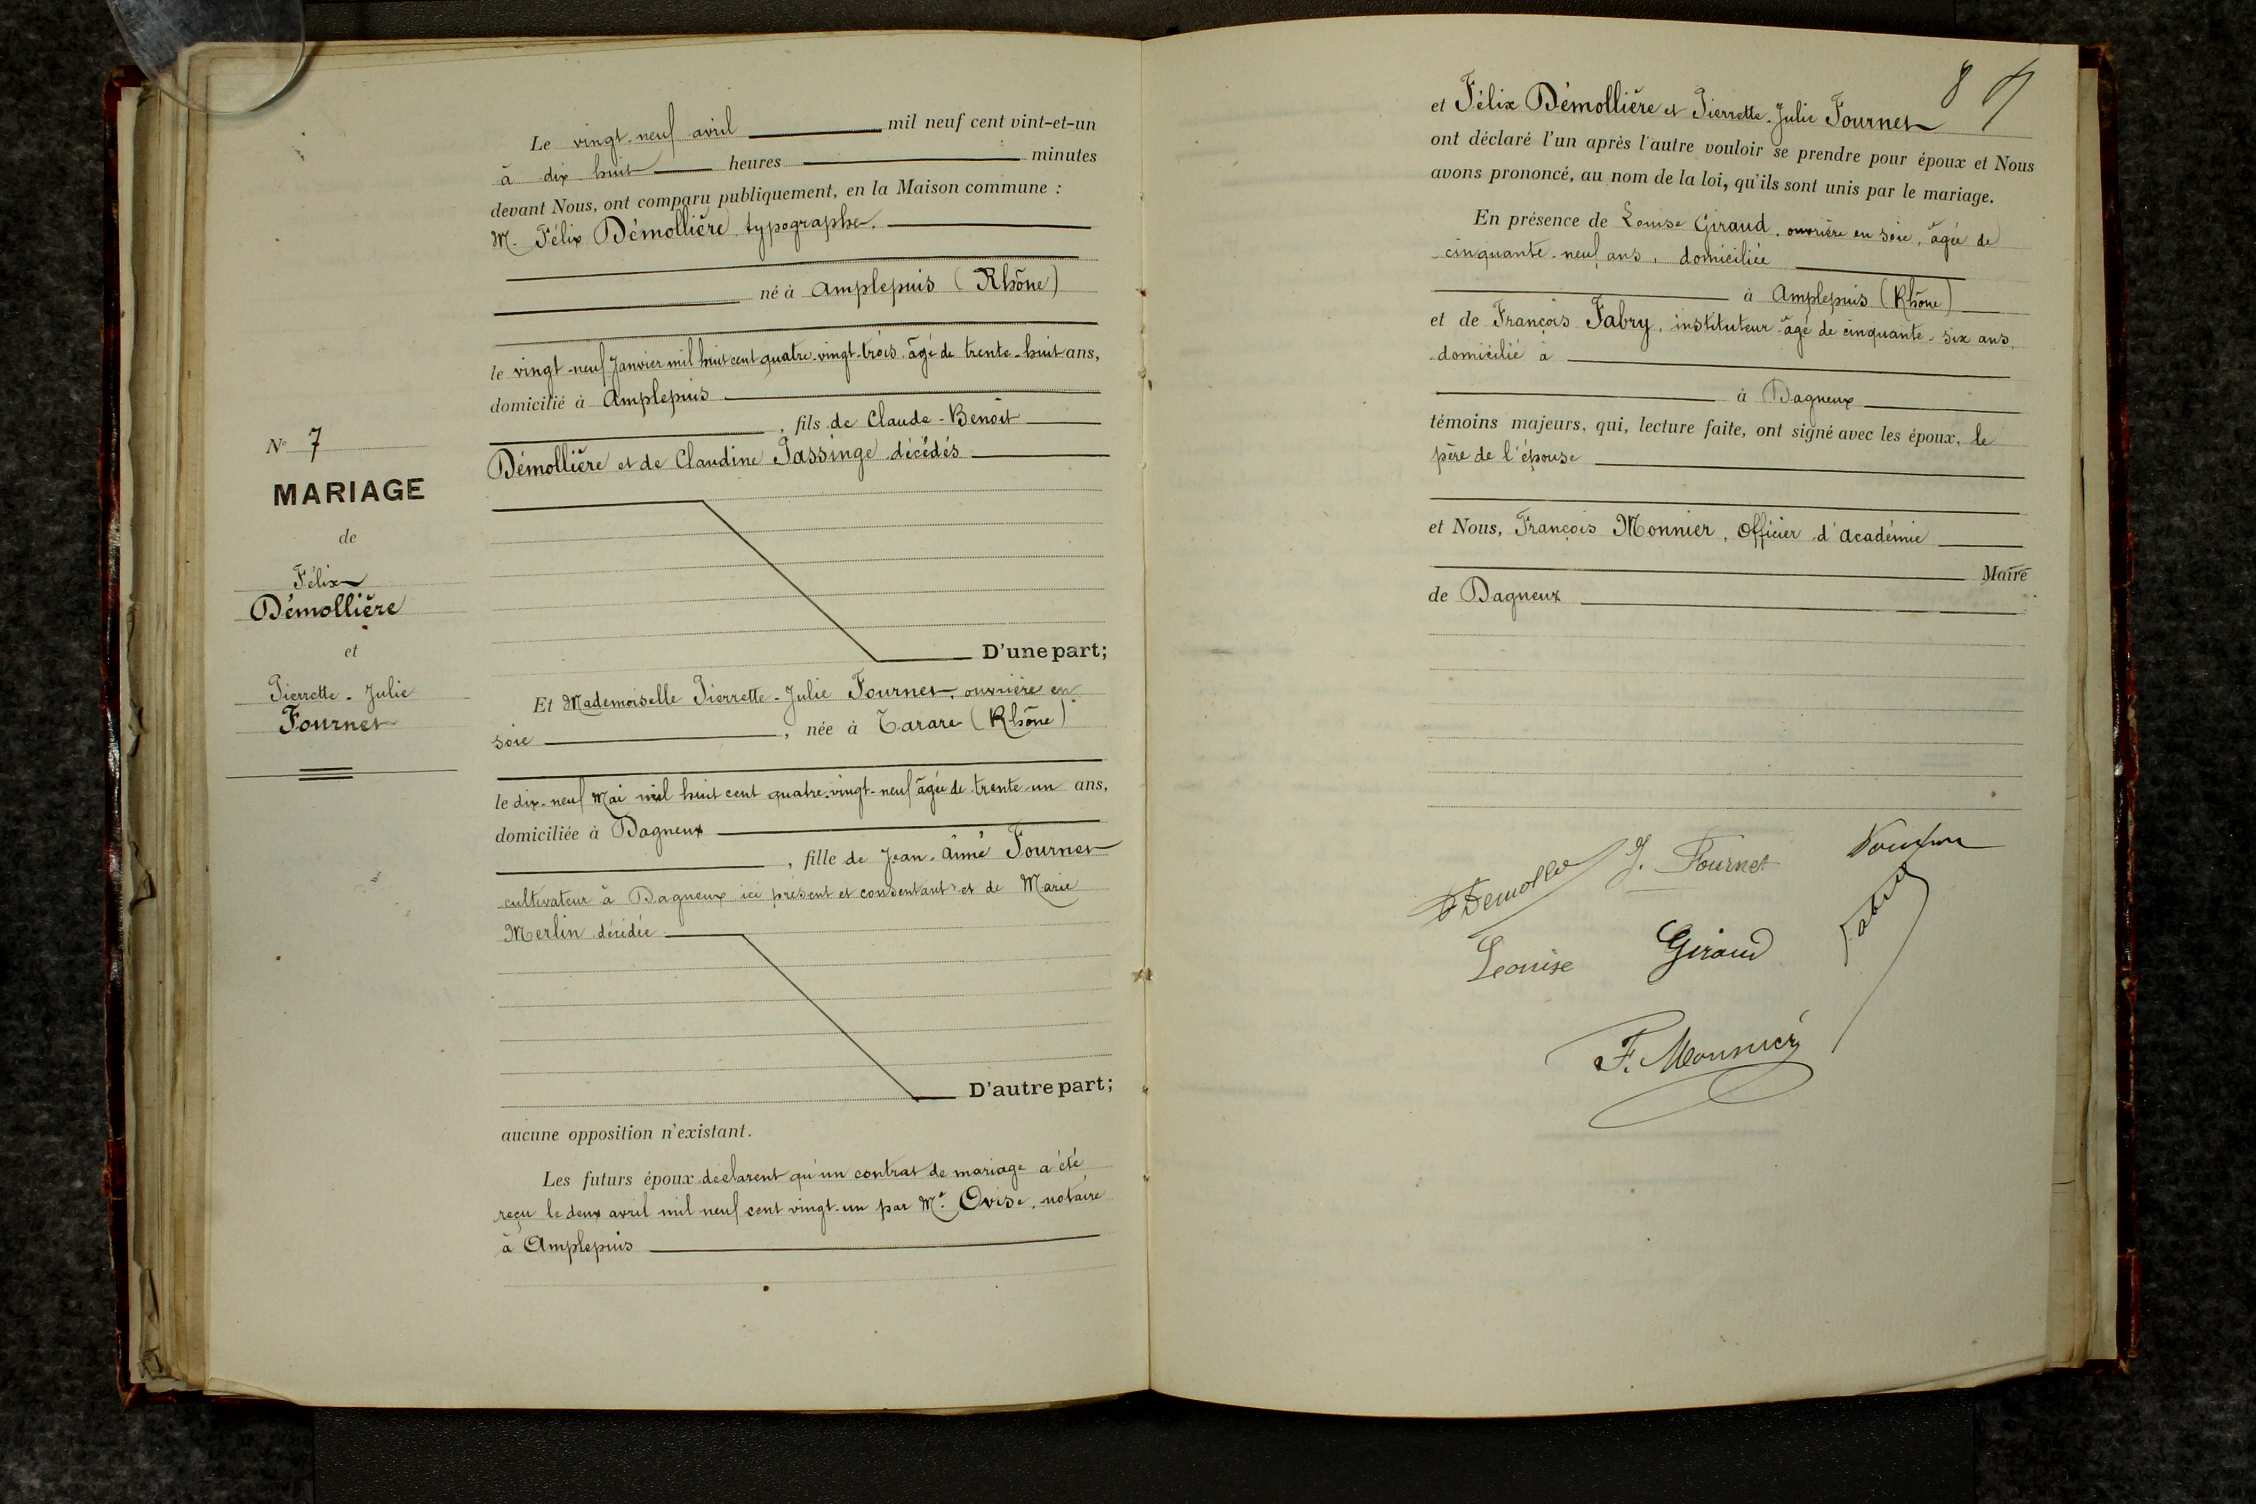 Le vingt-neuf avril mil neuf cent vint-et-un
à dix huit heures minutes
devant Nous, ont comparu publiquement, en la Maison commune :
M. Félix Démollière typographe.
né à Amplepuis (Rhône)
le vingt-neuf Janvier mil huit cent quatre-vingt-trois âgé de trente-huit ans,
domicilié à Amplepuis
, fils de Claude-Benoit
Démollière et de Claudine Passinge décédés
N° 7
MARIAGE
de
Félix
Démollière
et
Pierrette-Julie
Fournet
D'une part;
Et Mademoiselle Pierrette-Julie Fournet, ouvrière en
soie, née à Tarare (Rhône)
le dix-neuf Mai mil huit cent quatre-vingt-neuf âgée de trente-un ans,
domiciliée à Dagneux
, fille de Jean-Aimé Fournet
cultivateur à Dagneux ici présent et consentant et de Marie
Merlin décédée
D'autre part;
aucune opposition n'existant.
Les futurs époux déclarent qu'un contrat de mariage a été
reçu le deux avril mil neuf cent vingt-un par Me Ovise, notaire
à Amplepuis
8
et Félix Démollière et Pierrette-Julie Fournet
ont déclaré l'un après l'autre vouloir se prendre pour époux et Nous
avons prononcé, au nom de la loi, qu'ils sont unis par le mariage.
En présence de Louise Giraud, ouvrière en soie, âgée de
cinquante-neuf ans, domiciliée
à Amplepuis (Rhône)
et de François Fabry, instituteur âgé de cinquante-six ans,
domicilié à
à Dagneux
témoins majeurs, qui, lecture faite, ont signé avec les époux, le
père de l'épouse
et Nous, François Monnier, Officier d'Académie
Maire
de Dagneux
J. Fournet
Louise Giraud
Fabry
F. Monnier